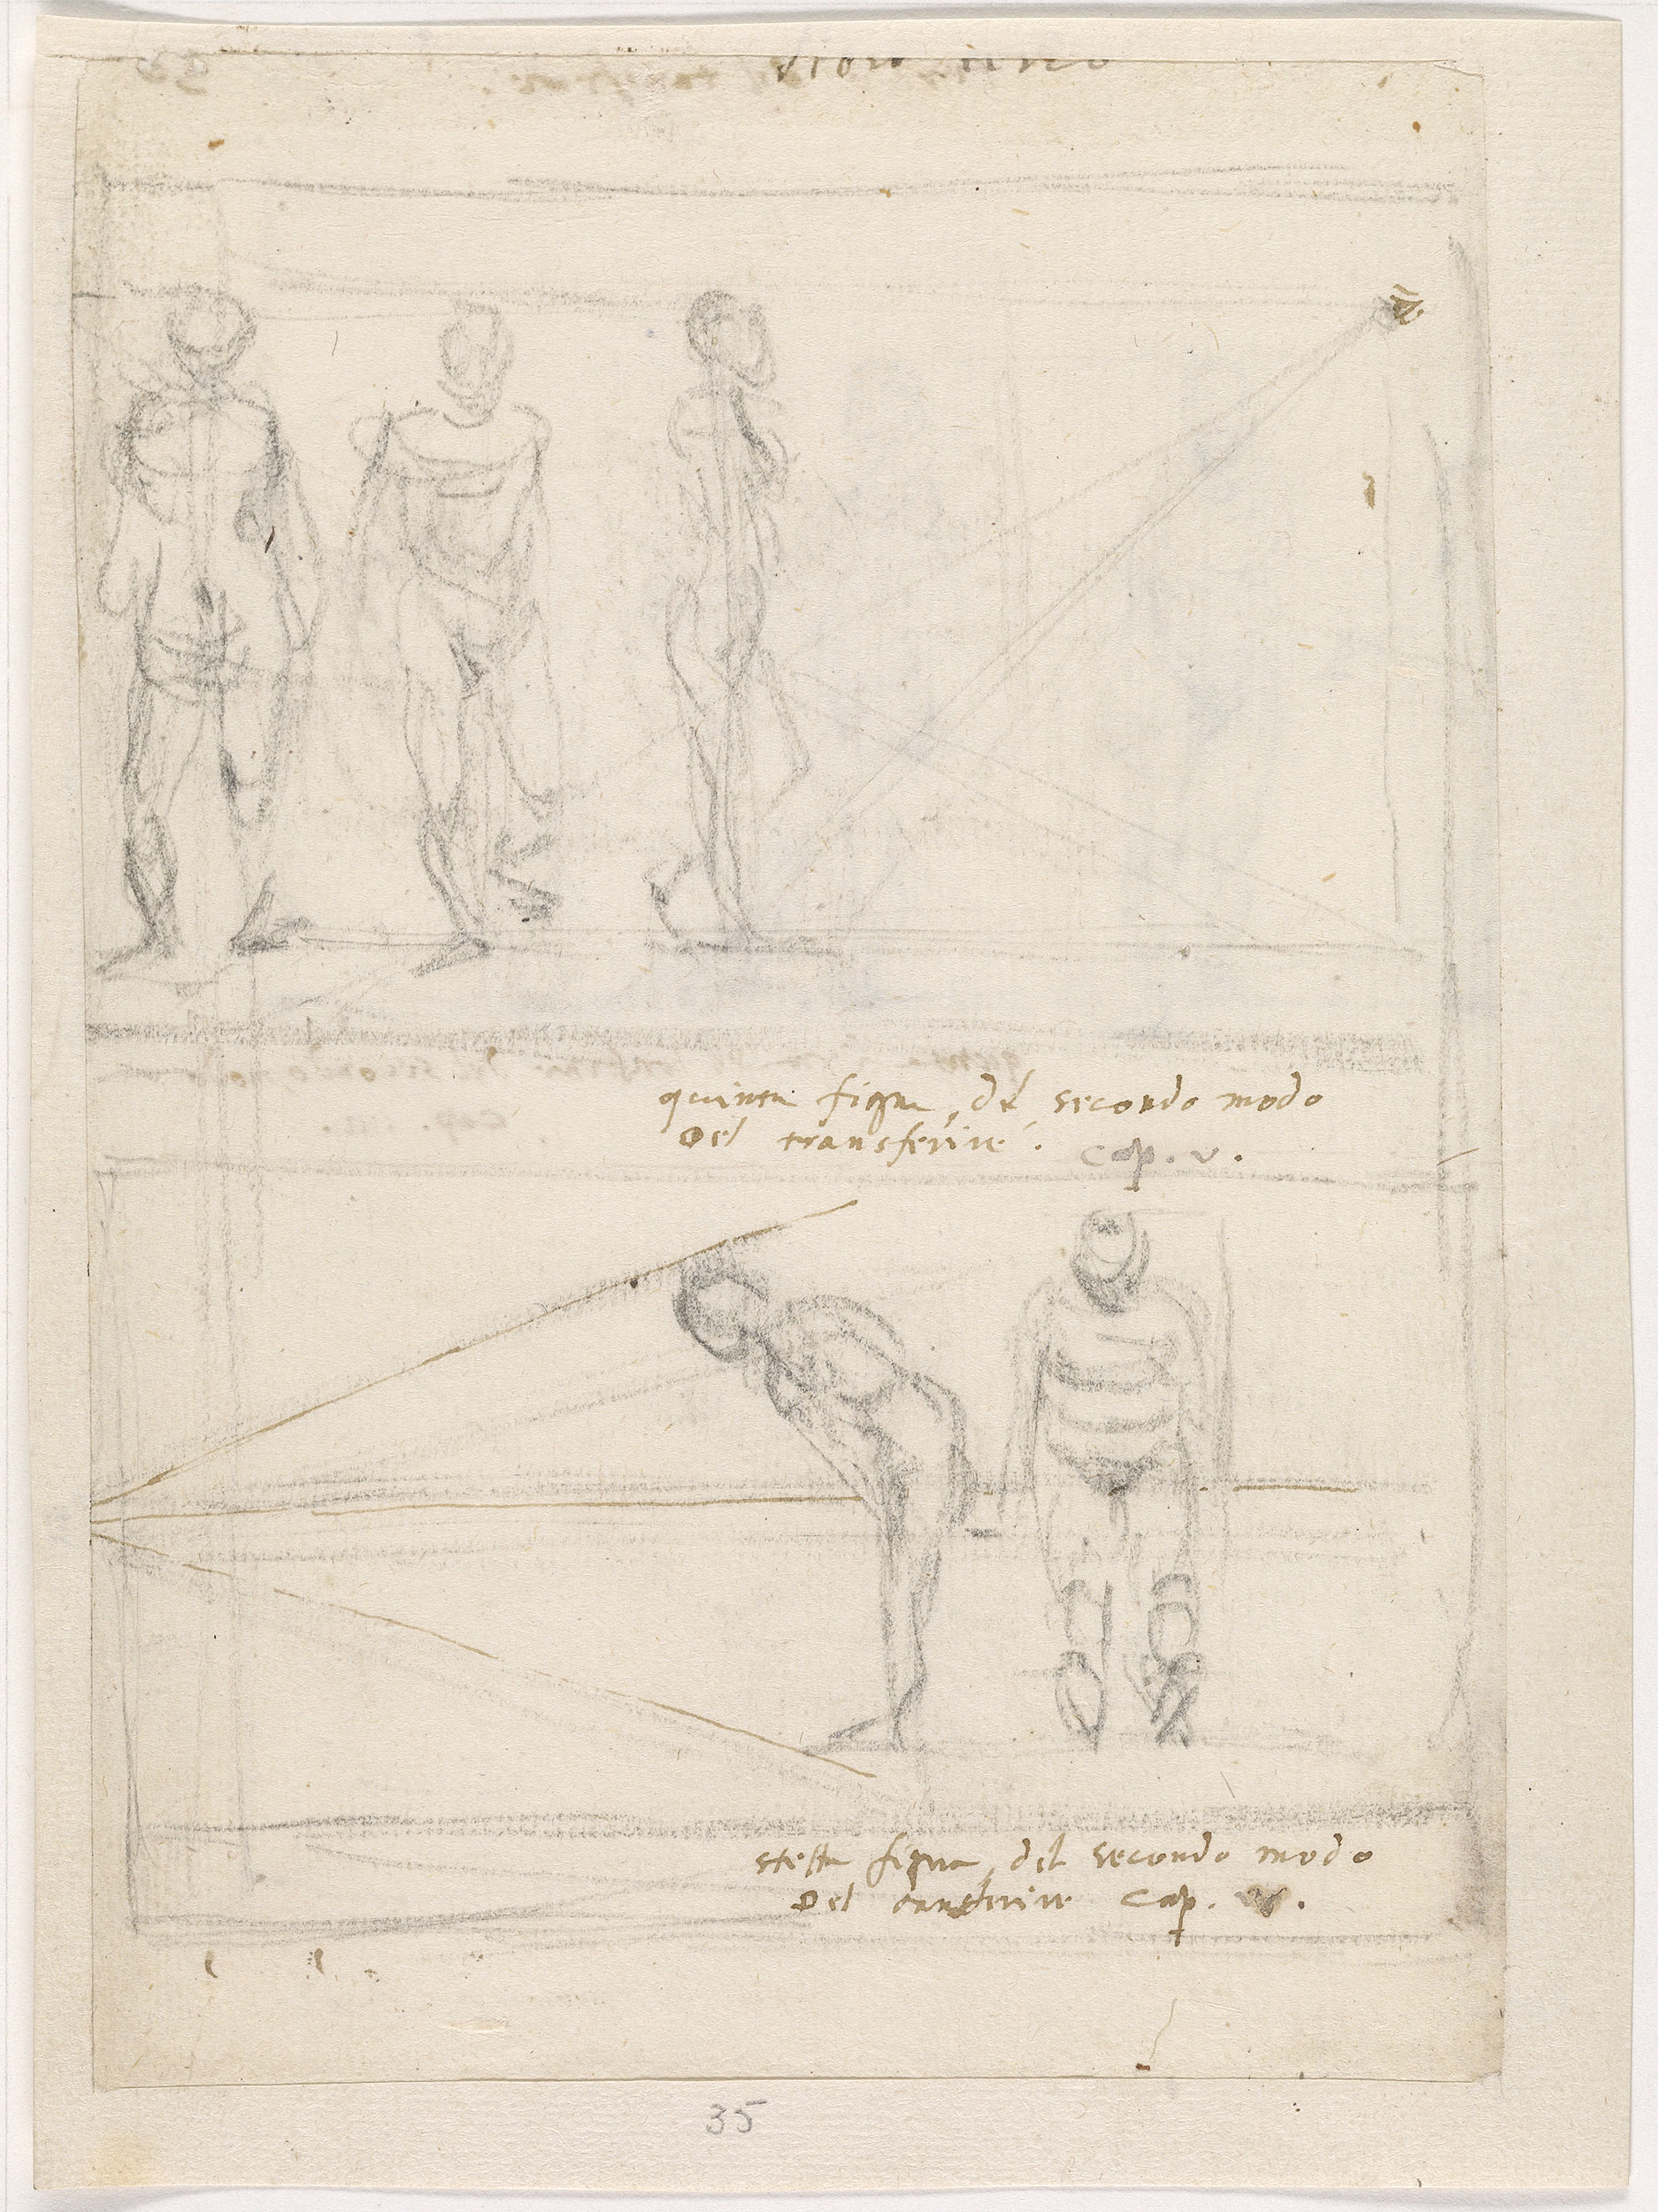 libro terzo
quinta figura, del secondo modo
Del transferire. Cap. v.
stessa figura, del secondo modo
Del transferire Cap.
35